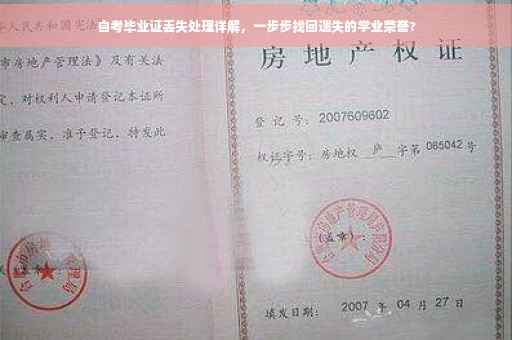 自考毕业证丢失处理详解，一步步找回遗失的学业荣誉?
人民共和国宪法
市房地产管理法》及有关法
定，对权利人申请登记本证所
审查属实，准予登记，特发此
房地产权证
登记号：2007609602
权证字号：房地权 庐 字第 065042 号
(盖章)：
填发日期：2007 年 04 月 27 日